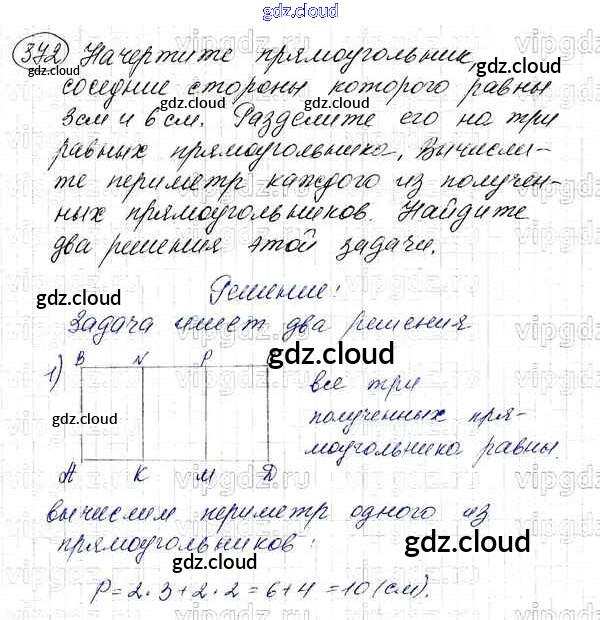 gdz.cloud
gdz.cloud
372) Начертите прямоугольник,
соседние стороны которого равны
3см и 6см. Разделите его на три
равных прямоугольника. Вычисли-
те периметр каждого из получен-
ных прямоугольников. Найдите
два решения этой задачи.
gdz.cloud
Решение:
gdz.cloud
Задача имеет два решения
gdz.cloud
1)
B N P
все три
полученных пря-
моугольника равны.
gdz.cloud
A K M D
вычислим периметр одного из
прямоугольников:
gdz.cloud
gdz.cloud
P = 2·3+2·2 = 6+4 = 10 (см).
vipgdz